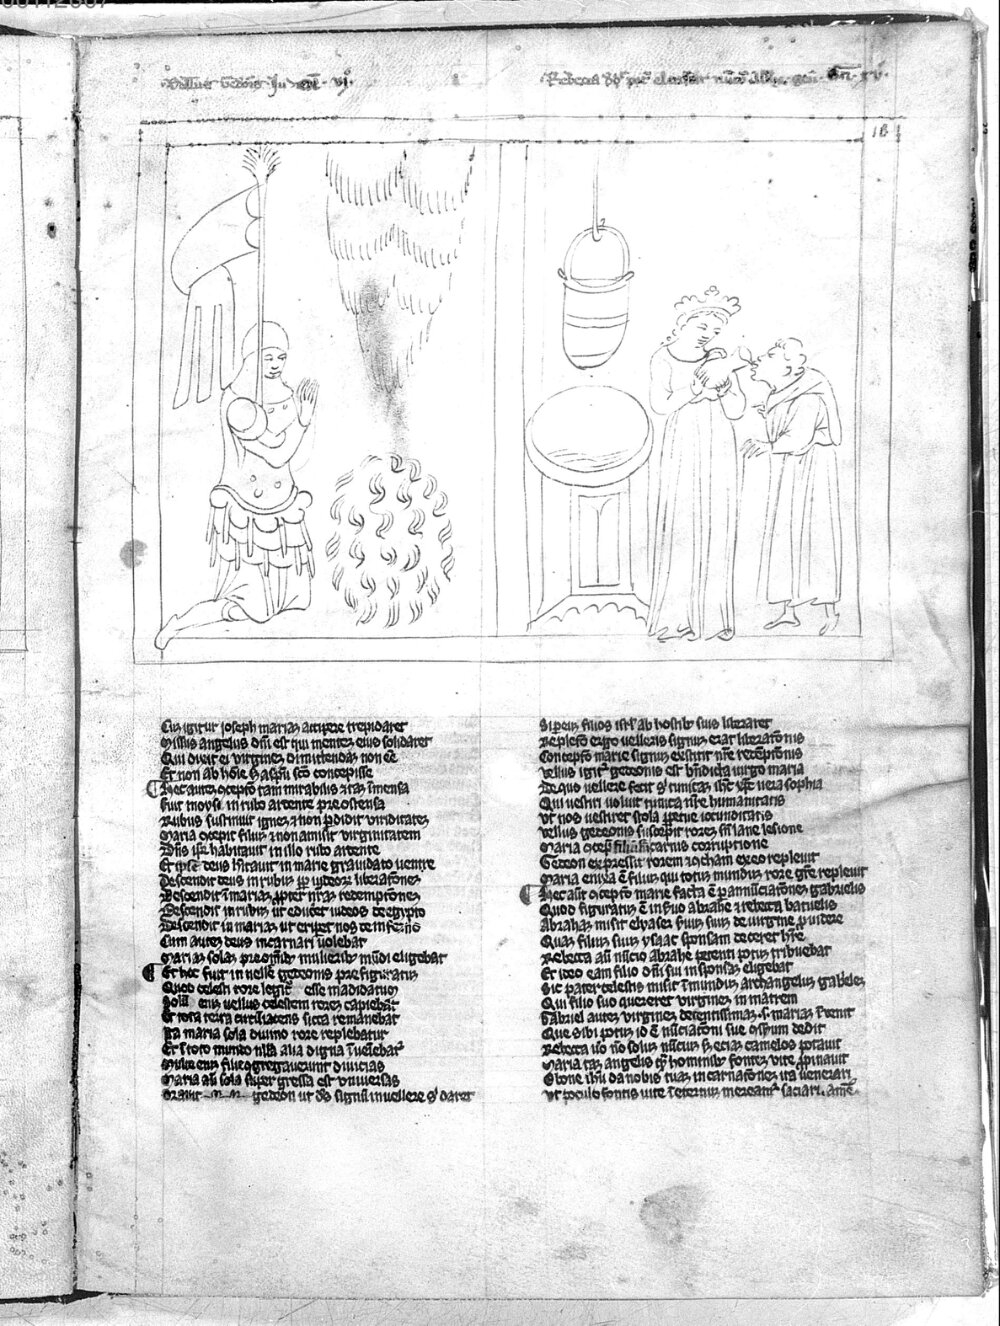 Vellus gedeonis Judicum vi.
Rebecca
18
Cum igitur ioseph mariam accipere trepidaret
Missus angelus dni est qui mentem eius solidaret
Qui dixit ei virginem dimittendam non eē
Et non ab hoīe sed a spū sco concepisse
Hec autem ɔcepto tam mirabilis et tam īmensa
fuit moysi in rubo ardente pre ostensa
Rubus sustinuit ignem et non pdidit viriditatem
Maria ɔcepit filium et non amisit virginitatem
Dns ipse habitauit in illo rubo ardente
Et ipse deus hītauit in marie grauidato uentre
Descendit deus in rubum pp iudeorum liberatōnem
Descendit ī mariam ppter nrām redemptōnem
Descendit in rubum ut educet iudeos de egypto
Descendit in mariam ut eriperet nos de inferno
Cum autem deus incarnari uolebat
Mariam solam pre omībus mulieribus mūdi eligebat
Et hoc fuit in uelle gedeonis prefiguratum
Quod celesti rore legitur esse madidatum
Solum enim uellus celestem rorem capiebat
Et tota terra circūiacens sicca remanebat
Ita maria sola diuino rore replebatur
Et ī toto mundo nlla alia digna īueniebatur
Multe enim filie ɔgregauerunt diuicias
Maria aūt sola super gressa est vniuersas
Orauit gedeon ut dns signū in uellere sibi daret
Si per eum filios isrl ab hostibus suis liberaret
Repletō ergo uelleris signum erat liberatōnis
Conceptō marie signum existit nrē redemptōnis
Vellus igitur gedeonis est bndicta uirgo maria
De quo vellere fecit sibi tunicam ihc xpc uera sophia
Qui uestiri uoluit tunica nrē humanitatis
Vt nos uestiret stola ppetue iocunditatis
Vellus gedeonis suscepit rorem sine lane lesione
Maria ɔcepit filium sine carnis corruptione
Gedeon expressit rorem et ɔcham ex eo repleuit
Maria enixa ē filium qui totum mundum rore grē repleuit
Hec aūt ɔceptō marie facta ē per annūciatōnem gabrielis
Quod figuratum ē in seruo abrahe et rebecca batuelis
Abraham misit elyaser seruum suum de uirgine puidere
Quam filium suum ysaac sponsam deceret hrē
Rebecca aūt nūcio abrahe petenti potum tribuebat
Et ideo eam filio dni sui in sponsam eligebat
Sic pater celestis misit ī mundum archangelum gabrielem
Qui filio suo quereret virginem in matrem
Gabriel autem virginem decentissimam s. mariam īuenit
Que sibi potum id ē nūciatōni sue ɔsensum dedit
Rebecca uō nō solum nūcium sed et eciam camelos potauit
Maria tam angelis quam hominibus fontem vite ppinauit
O bone ihu da nobis tuam incarnatōnem ita uenerari
Vt poculo fontis uite ī eternum mereamur saciari. amē.